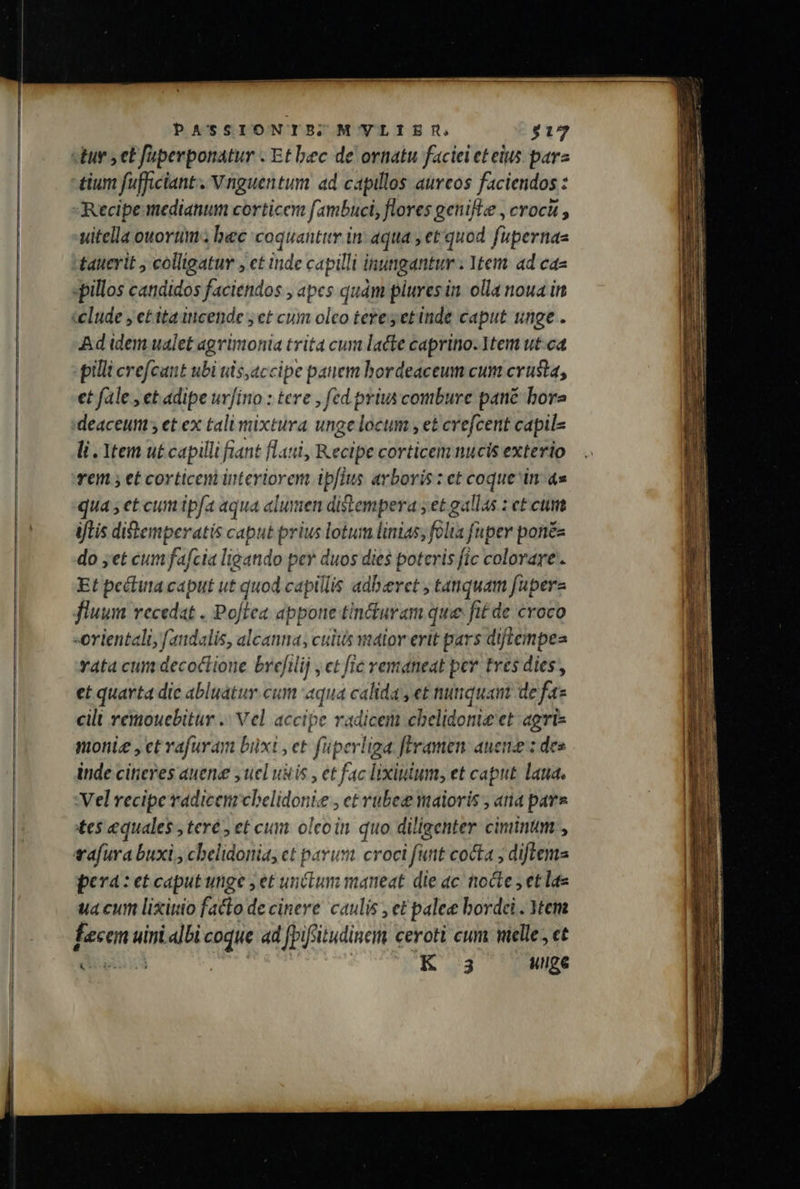 PASSIONIB. MVLIER. 517
tur, et ſuperponatur. Et hæc de ornatu faciei et eius par=
tium ſufficiant. Vnguentum ad capillos aureos faciendos:
Recipe medianum corticem ſambuci, flores geniſtæ, crocū,
uitella ouorum: hæc coquantur in aqua, et quod ſuperna=
tauerit, colligatur, et inde capilli inungantur. Item ad ca=
pillos candidos faciendos, apes quàm plures in olla noua in
clude, et ita incende, et cum oleo tere, et inde caput unge.
Ad idem ualet agrimonia trita cum lacte caprino. Item ut ca
pilli creſcant ubi uis, accipe panem hordeaceum cum cruſta,
et ſale, et adipe urſino: tere, ſed prius combure panē hor=
deaceum, et ex tali mixtura unge locum, et creſcent capil=
li. Item ut capilli fiant flaui, Recipe corticem nucis exterio
rem, et corticem interiorem ipſius arboris: et coque in a=
qua, et cum ipſa aqua alumen diſtempera, et gallas: et cum
iſtis diſtemperatis caput prius lotum linias, folia ſuper ponē=
do, et cum faſcia ligando per duos dies poteris ſic colorare.
Et pectina caput ut quod capillis adhæret, tanquam ſuper=
fluum recedat. Poſtea appone tincturam quæ fit de croco
orientali, ſandalis, alcanna, cuius maior erit pars diſtempe=
rata cum decoctione breſilij, et ſic remaneat per tres dies,
et quarta die abluatur cum aqua calida, et nunquam de fa=
cili remouebitur. Vel accipe radicem chelidoniæ et agri=
moniæ, et raſuram buxi, et ſuperliga ſtramen auenæ: de=
inde cineres auenæ, uel uitis, et fac lixiuium, et caput laua.
Vel recipe radicem chelidoniæ, et rubeæ maioris, ana par=
tes æquales, tere, et cum oleo in quo diligenter ciminum,
raſura buxi, chelidonia, et parum croci ſunt cocta, diſtem=
pera: et caput unge, et unctum maneat die ac nocte, et la=
ua cum lixiuio facto de cinere caulis, et paleæ hordei. Item
fæcem uini albi coque ad ſpiſsitudinem ceroti cum melle, et
K 3 unge